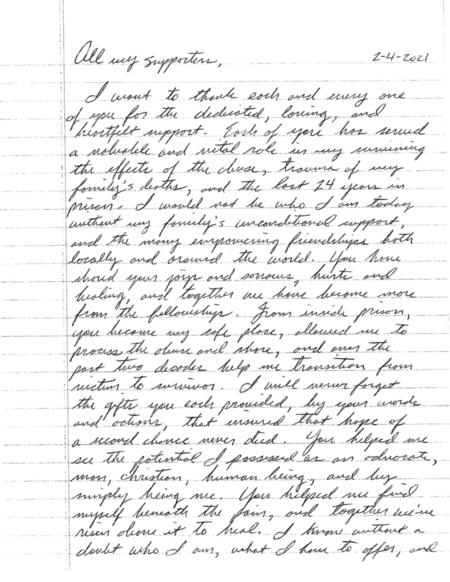 All my supporters, 2-4-2021
I want to thank each and every one
of you for the dedicated, loving, and
heartfelt support. Each of you has served
a valuable and vital role in my surviving
the effects of the abuse, trauma of my
family's deaths, and the last 24 years in
prison. I would not be who I am today
without my family's unconditional support,
and the many empowering friendships both
locally and around the world. You have
shared your joys and sorrows, hurts and
healing, and together we have become more
from the fellowships. From inside prison,
you became my safe place, allowed me to
process the abuse and shame, and over the
past two decades help me transition from
victim to survivor. I will never forget
the gifts you each provided, by your words
and actions, that insured that hope of
a second chance never died. You helped me
see the potential I possessed as an advocate,
man, christian, human being, and by
simply being me. You helped me find
myself beneath the pain, and together we've
risen above it to heal. I know without a
doubt who I am, what I have to offer, and